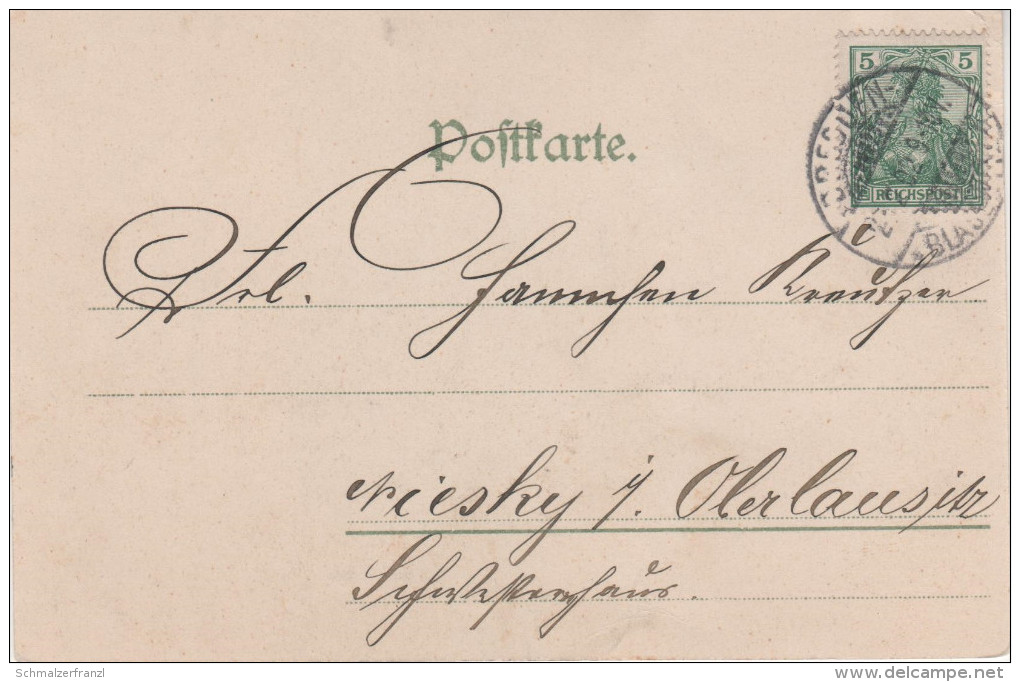 5 5
REICHSPOST
DRESDEN-
BLASEWITZ
Postkarte.
Frl. Hannchen Kreutzer
Niesky i/. Oberlausitz
Schwesternhaus.
Schmalzerfranzl
delcampe.net